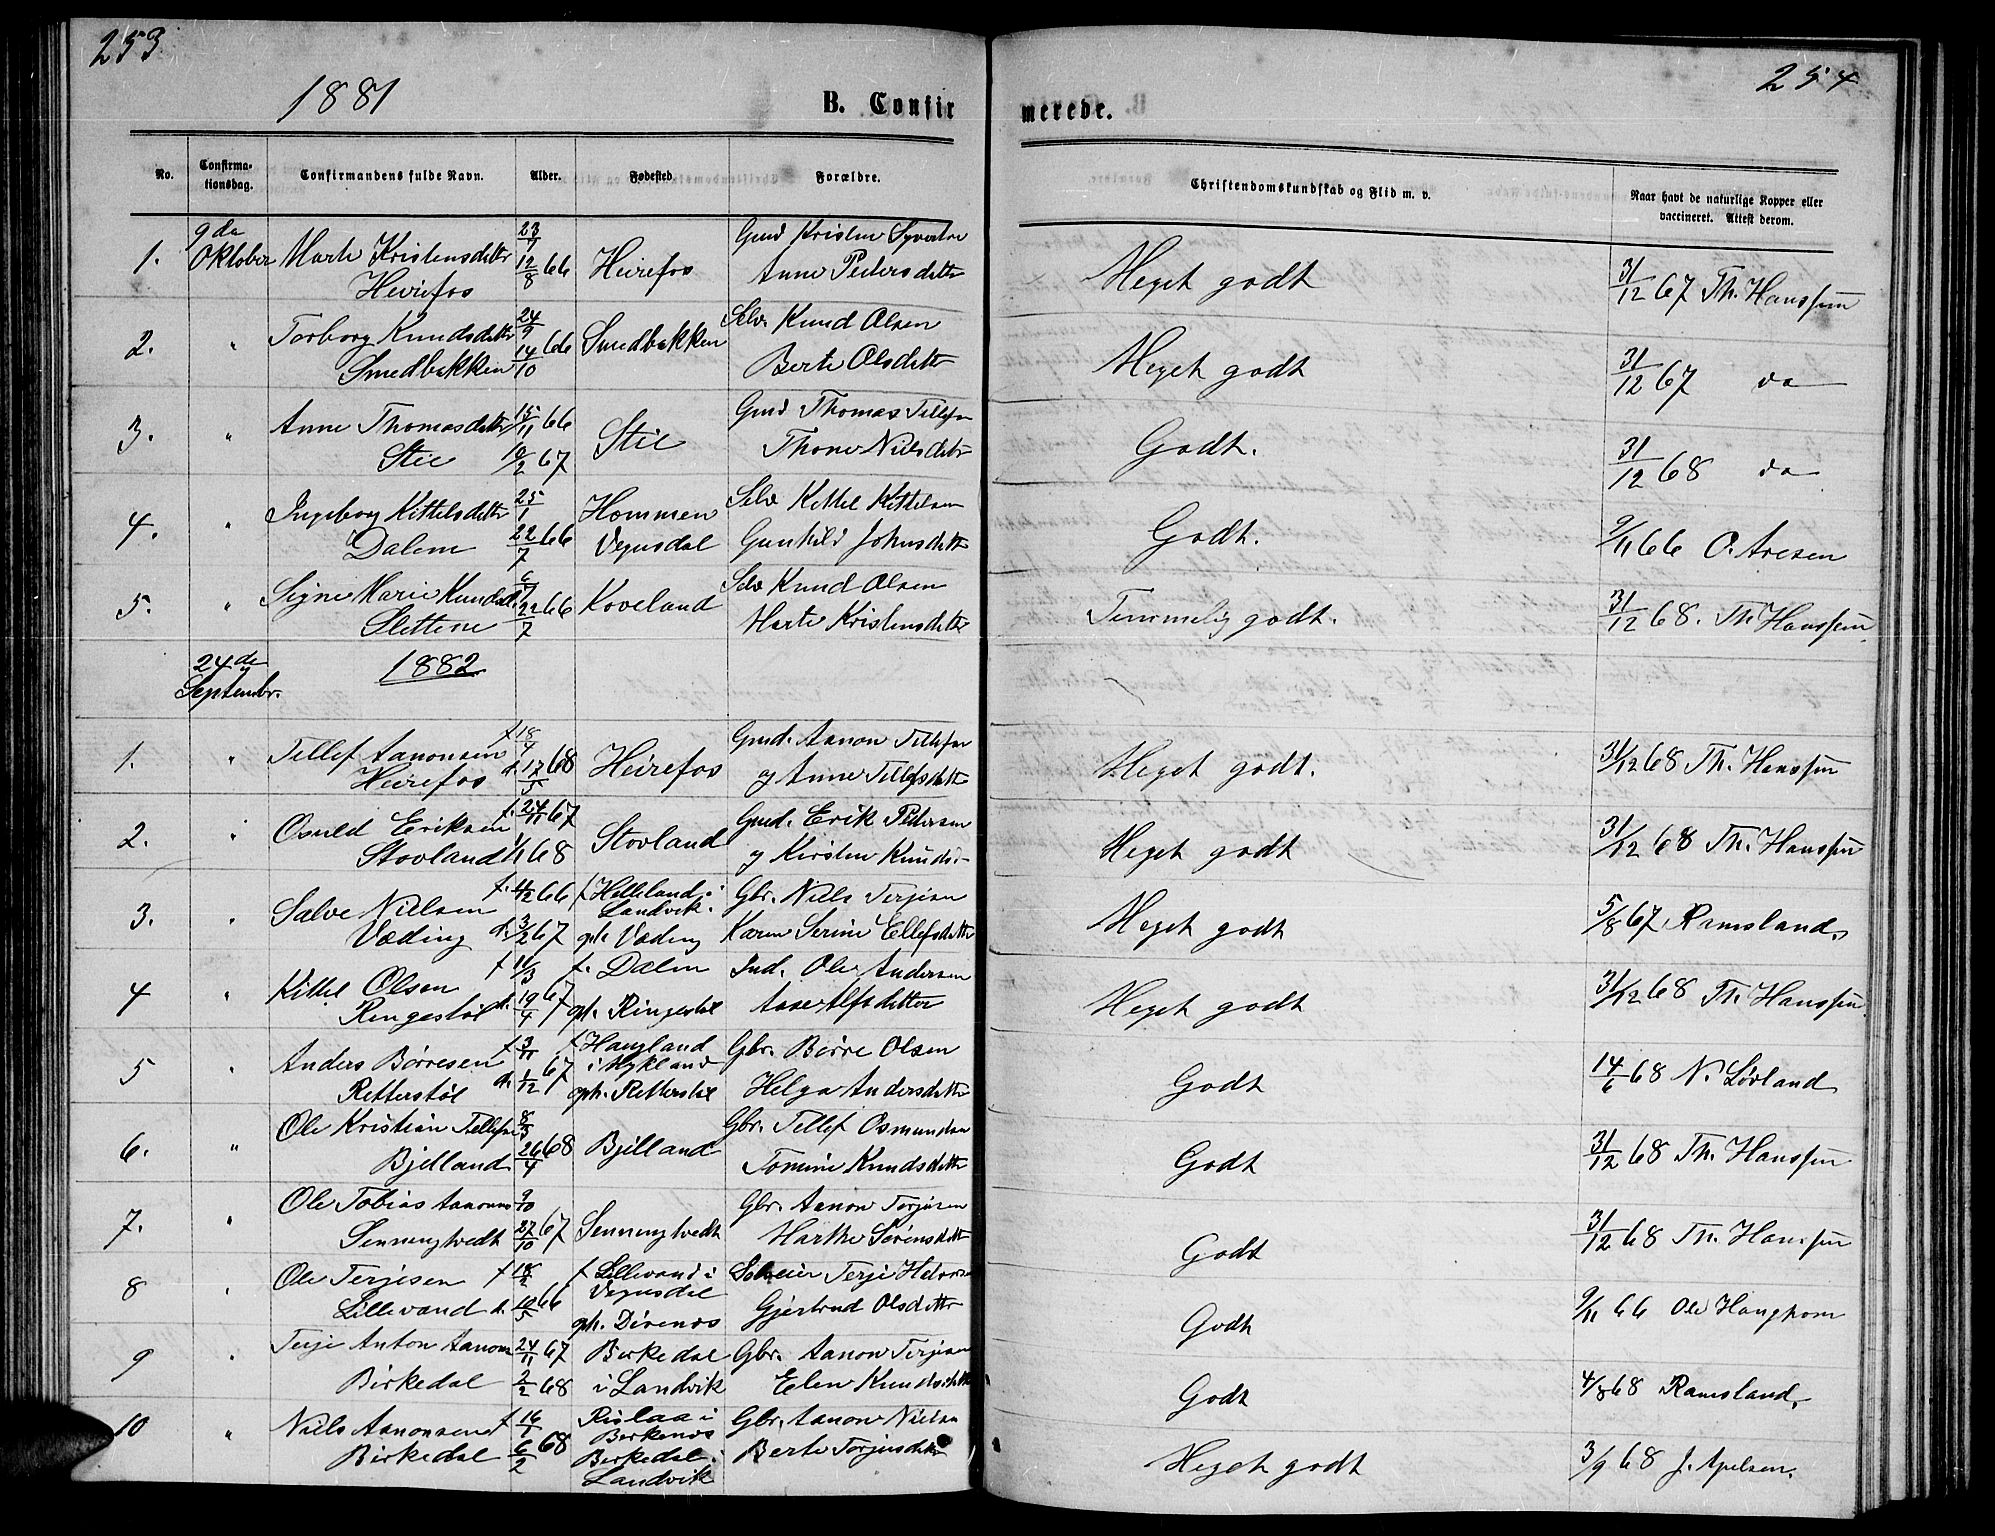 253
254
1881
B. Confirmerede.
No. Confirmationsdag. Confirmandens fulde Navn. Alder. Fødested. Forældre. Christendomskundskab og Flid m. v. Naar havt de naturlige Kopper eller vaccineret. Attest derom.
9da
1. Oktober Marte Kristensdatter 23/7 12/8 66 Heirefos Gmd Kristen Syvertsen Meget godt 31/12 67 Th. Hanssen
Heirefos Anne Pedersdatter
2. " Torborg Knudsdatter 24/9 14/10 66 Smedbakken Selv. Knud Olsen Meget godt 31/12 67 do
Smedbakken Berte Olsdatter
3. " Anne Thomasdatter 15/11 66 Stie Gmd Thomas Tellefsen Godt. 31/12 68 do
Stie 10/2 67 Thone Nilsdatter
4. " Ingeborg Kittelsdatter 25/1 22/7 66 Hommen Selv Kittel Kittelsen Godt. 9/11 66 O. Aresen
Dalene Vegusdal Gunhild Johnsdatter
5. " Signe Marie Knudsd. 22/7 66 Koveland Selv Knud Olsen Temmelig godt. 31/12 68. Th Hanssen
Slettene Marte Kristensdatter
24de
Septembr. 1882
1. " Tellef Aanonsen f 18/4 68 Heirefos Gmd. Aanon Tellefsen Meget godt. 31/12 68 Th. Hanssen
Heirefos d. 17/5 og Anne Tellefsdatter
2. " Osuld Eriksen f. 24/11 67 Stovland Gmd. Erik Pedersen Meget godt 31/12 68 Th. Hanssen
Stovland 1/1 68 og Kirsten Knudsd
3. " Salve Nielsen f. 4/12 66 f Helleland i Landvik. Gbr. Niels Terjesen Meget godt 5/8 67 Ramsland.
Væding d. 3/2 67 oph. Væding Karen Serine Ellefsdatter
4 " Kittel Olsen f 11/3 f. Dalen Ind. Ole Andersen Meget godt 31/12 68 Th. Hanssen
Ringestøl d. 19/4 67 oph. Ringestøl Aase Alfsdatter
5 " Anders Børresen f 3/11 f Haugland i Mykland Gbr. Børre Olsen Godt 14/6 68 N. Løvland
Retterstøl d. 1/12 67 oph. Retterstøl Helga Andersdatter
6. " Ole Kristian Tellefsen 8/3 Bjelland Gbr. Tellef Osmundsen Godt 31/12 68 Th. Hanssen
Bjelland 26/4 68 Tomine Knudsdatter
7. " Ole Tobias Aanonsen 9/10 Senningtvedt Gbr. Aanon Torjusen Godt 31/12 68 Th. Hanssen
Senningtvedt 27/10 67 Marthe Sørensdatter
8 " Ole Terjesen f 18/2 f Lillevand i Vegusdal Terje Godt 9/11 66 Ole
Lillevand d. 10/5 66 oph. Direnes Gjertrud Olsdatter
9 " Terje Anton Aanons 24/11 67 Birkedal Gbr. Aanon Terjesen Godt 4/8 68 Ramsland.
Birkedal 2/2 68 i Landvik Elen Knudsdatter
10 " Niels Aanonsen f 16/1 Rislaa i Birkenes Gbr. Aanon Nielsen Meget godt 3/9 68 J. Apelsen.
Birkedal 6/2 68 Birkedal i Landvik Berte Torjusdatter